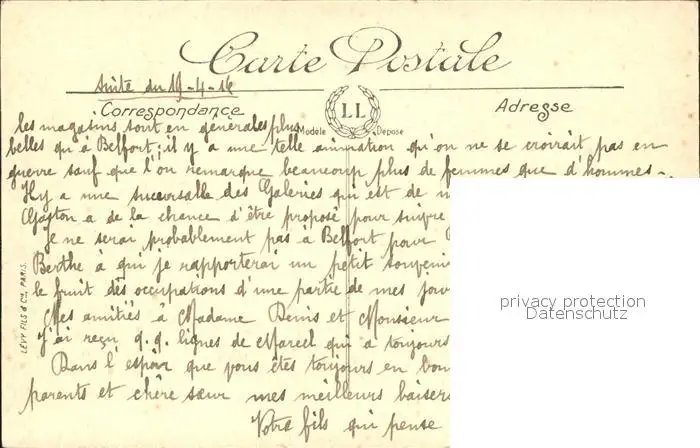 Carte Postale
Suite du 19-4-16
Correspondance
LL
Modèle Déposé
Adresse
les magasins sont en générales plus
belles qu'à Belfort; il y a une telle animation qu'on ne se croirait pas en
guerre sauf que l'on remarque beaucoup plus de femmes que d'hommes.
Il y a une succursalle des Galeries qui est de
Gaston a de la chance d'être proposé pour suivre
Je ne serai probablement pas à Belfort pour
Berthe à qui je rapporterai un petit souvenir
le fruit des occupations d'une partie de mes jour
Mes amitiés à Madame Denis et Monsieur
J'ai reçu q.q. lignes de Marcel qui a toujours
Dans l'espoir que vous êtes toujours en bon
parents et chère sœur mes meilleurs baisers
Votre fils qui pense
LÉVY FILS & Cie, PARIS.
privacy protection
Datenschutz